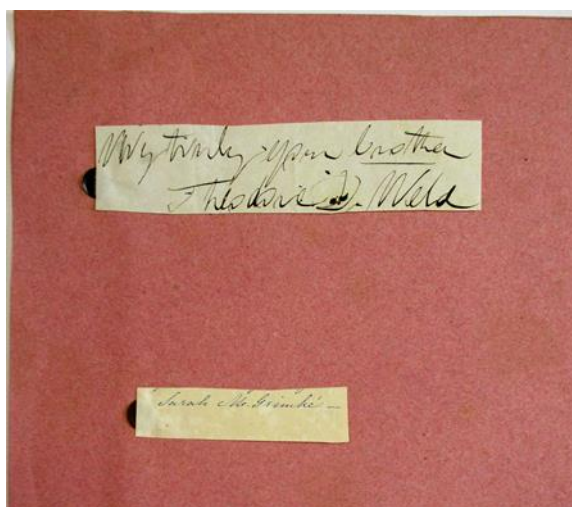 Very truly your brother
Theodore D. Weld
Sarah M. Grimké —